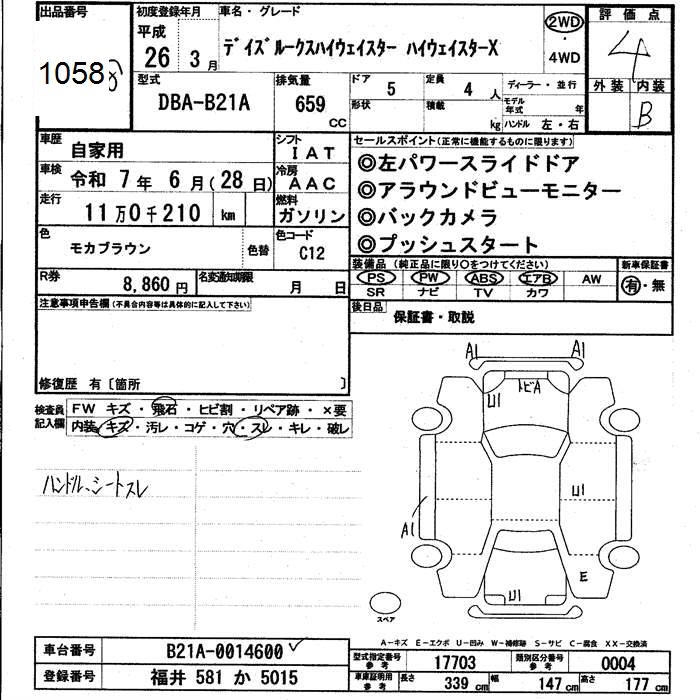 出品番号
1058
初度登録年月
平成
26年 3月
車名・グレード
デイズルークスハイウェイスター ハイウェイスターX
2WD
・
4WD
評価点
4
外装 内装
B
型式
DBA-B21A
排気量
659
CC
ドア
5
定員
4人
形状
積載
kg
ディーラー・並行
モデル年式 年
ハンドル 左・右
車歴
自家用
シフト
IAT
車検
令和 7年 6月(28日)
冷房
AAC
走行
11万0千210 km
燃料
ガソリン
色
モカブラウン
色替
色コード
C12
R券
8,860円
名変通知期限
月 日
セールスポイント(正常に機能するものに限ります)
◎左パワースライドドア
◎アラウンドビューモニター
◎バックカメラ
◎プッシュスタート
装備品(純正品に限り○をつけてください)
PS PW ABS エアB AW
SR ナビ TV カワ
新車保証書
有・無
後日品
保証書・取説
注意事項申告欄(不具合内容等は具体的に記入して下さい)
修復歴 有〔箇所 〕
検査員記入欄
FW キズ・飛石・ヒビ割・リペア跡・×要
内装 キズ・汚レ・コゲ・穴・スレ・キレ・破レ
ハンドル、シートスレ
A1 A1
U1
トビA
U1
A1
E
U1
スペア
A-キズ E-エクボ U-凹み W-補修跡 S-サビ C-腐食 XX-交換済
車台番号
B21A-0014600
登録番号
福井 581 か 5015
型式指定番号
参考
17703
類別区分番号
参考
0004
車庫証明用
参考
長さ
339cm
幅
147cm
高さ
177cm